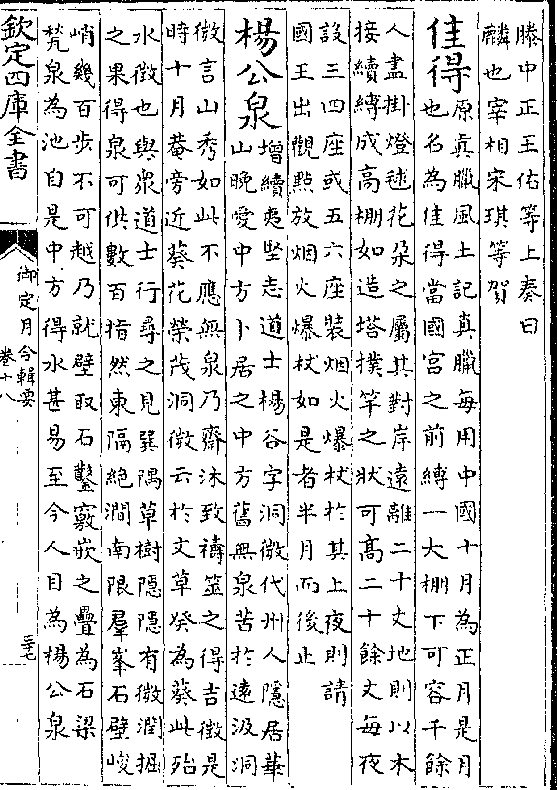 滕中正王佑等上奏曰
麟也宰相宋琪等賀
佳得
原真臘風土記真臘每用中國十月為正月是月
也名為佳得當國宫之前縛一大棚下可容千餘
人盡掛燈毬花朵之屬其對岸遠離二十丈地則以木
接續縛成高棚如造塔撲竿之狀可髙二十餘丈每夜
設三四座或五六座裝烟火爆杖於其上夜則請
國王出觀點放烟火爆杖如是者半月而後止
楊公泉
增續夷堅志道士楊谷字洞微代州人隱居華
山晚愛中方卜居之中方舊無泉苦於遠汲洞
微言山秀如此不應無泉乃齋沐致禱筮之得吉徵是
時十月菴旁近葵花榮茂洞微云於文草癸為葵此殆
水徵也與衆道士行尋之見巽隅草樹隱隱有微潤掘
之果得泉可供數百指然東隔絶澗南限羣峯石壁峻
峭幾百步不可越乃就壁取石鑿竅嵌之疊為石梁
梵泉為池自是中方得水甚易至今人目為楊公泉
欽定四庫全書
御定月令輯要
卷十八
三七